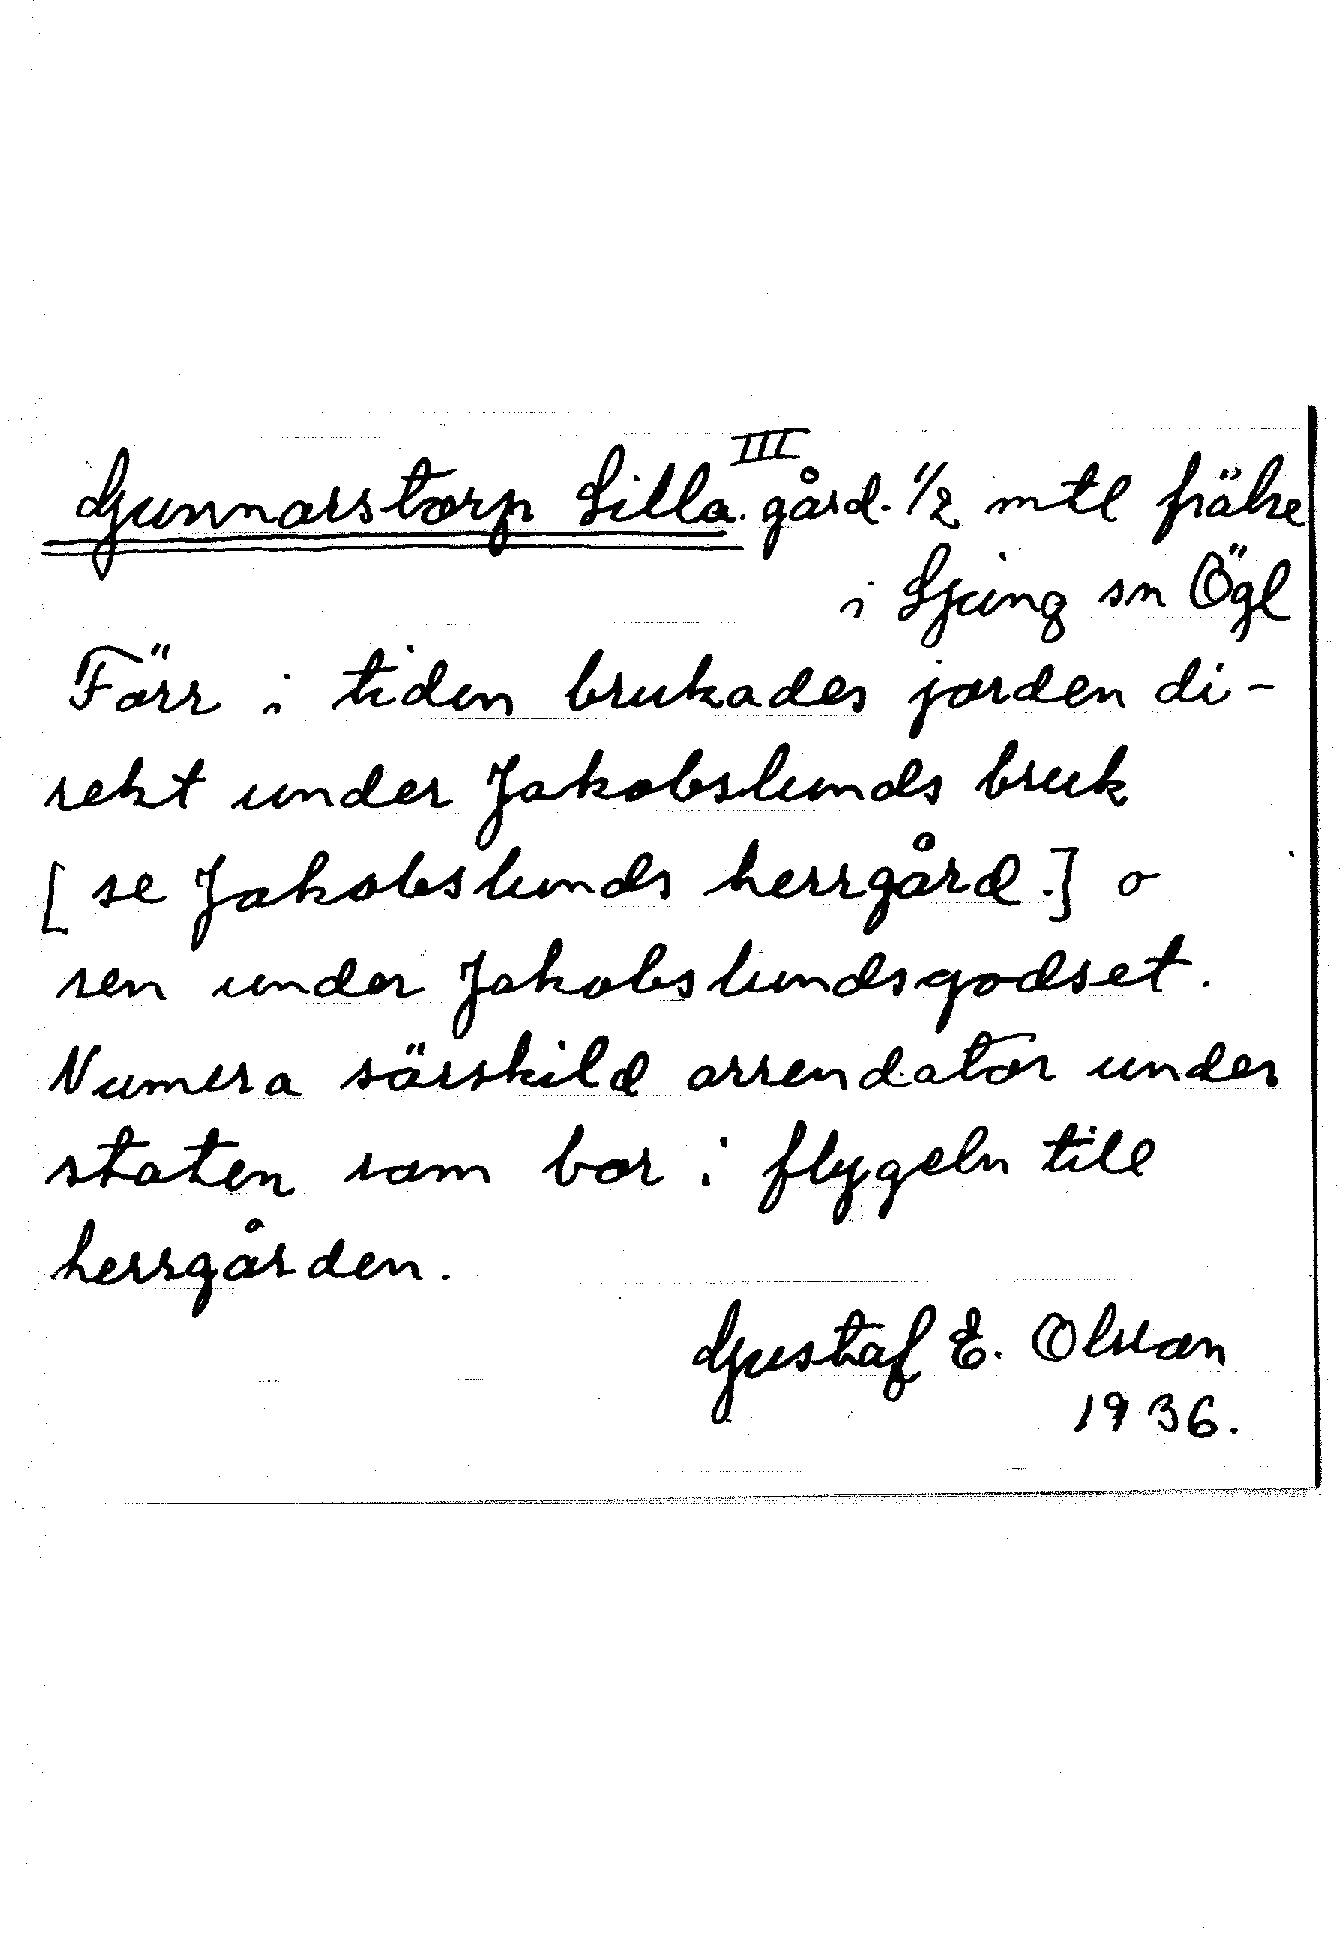 Gunnarstorp Lilla III. gård. 1/2 mtl frälse
i Ljung sn Ögl
Förr i tiden brukades jorden di-
rekt under Jakobslunds bruk
[se Jakobslunds herrgård.] o
sen under Jakobslundsgodset.
Numera särskild arrendator under
staten som bor i flygeln till
herrgården.
Gustaf E. Olsson
1936.